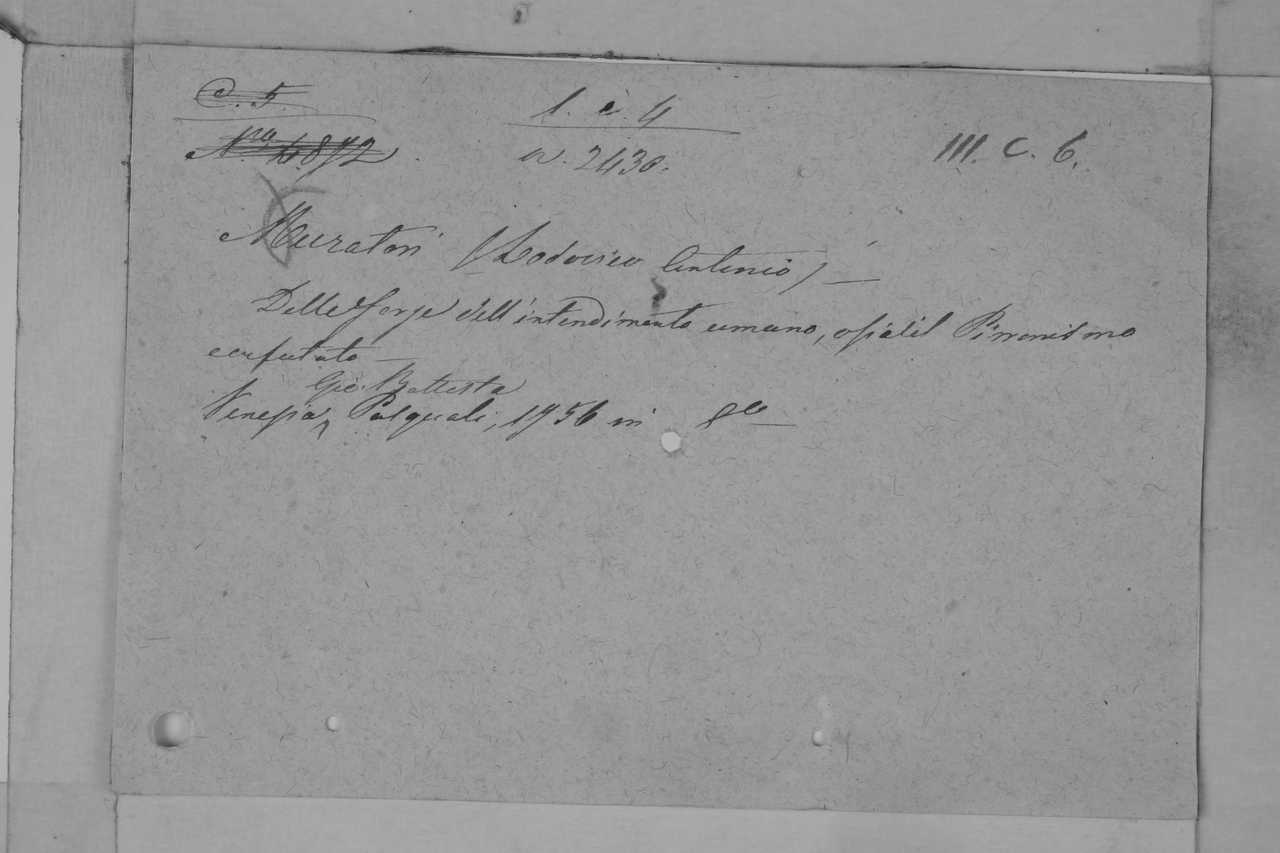 C. 5
1. c. 4
III. C. 6.
Nro 4.872
n. 2430.
Muratori (Lodovico Antonio) —
Delle forze dell'intendimento umano, ossia il Pirronismo
confutato —
Gio. Battista
Venezia, Pasquali, 1756 in 8vo —